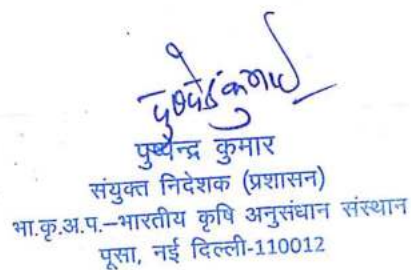 पुष्पेन्द्र कुमार
पुष्पेन्द्र कुमार
संयुक्त निदेशक (प्रशासन)
भा.कृ.अ.प.–भारतीय कृषि अनुसंधान संस्थान
पूसा, नई दिल्ली-110012